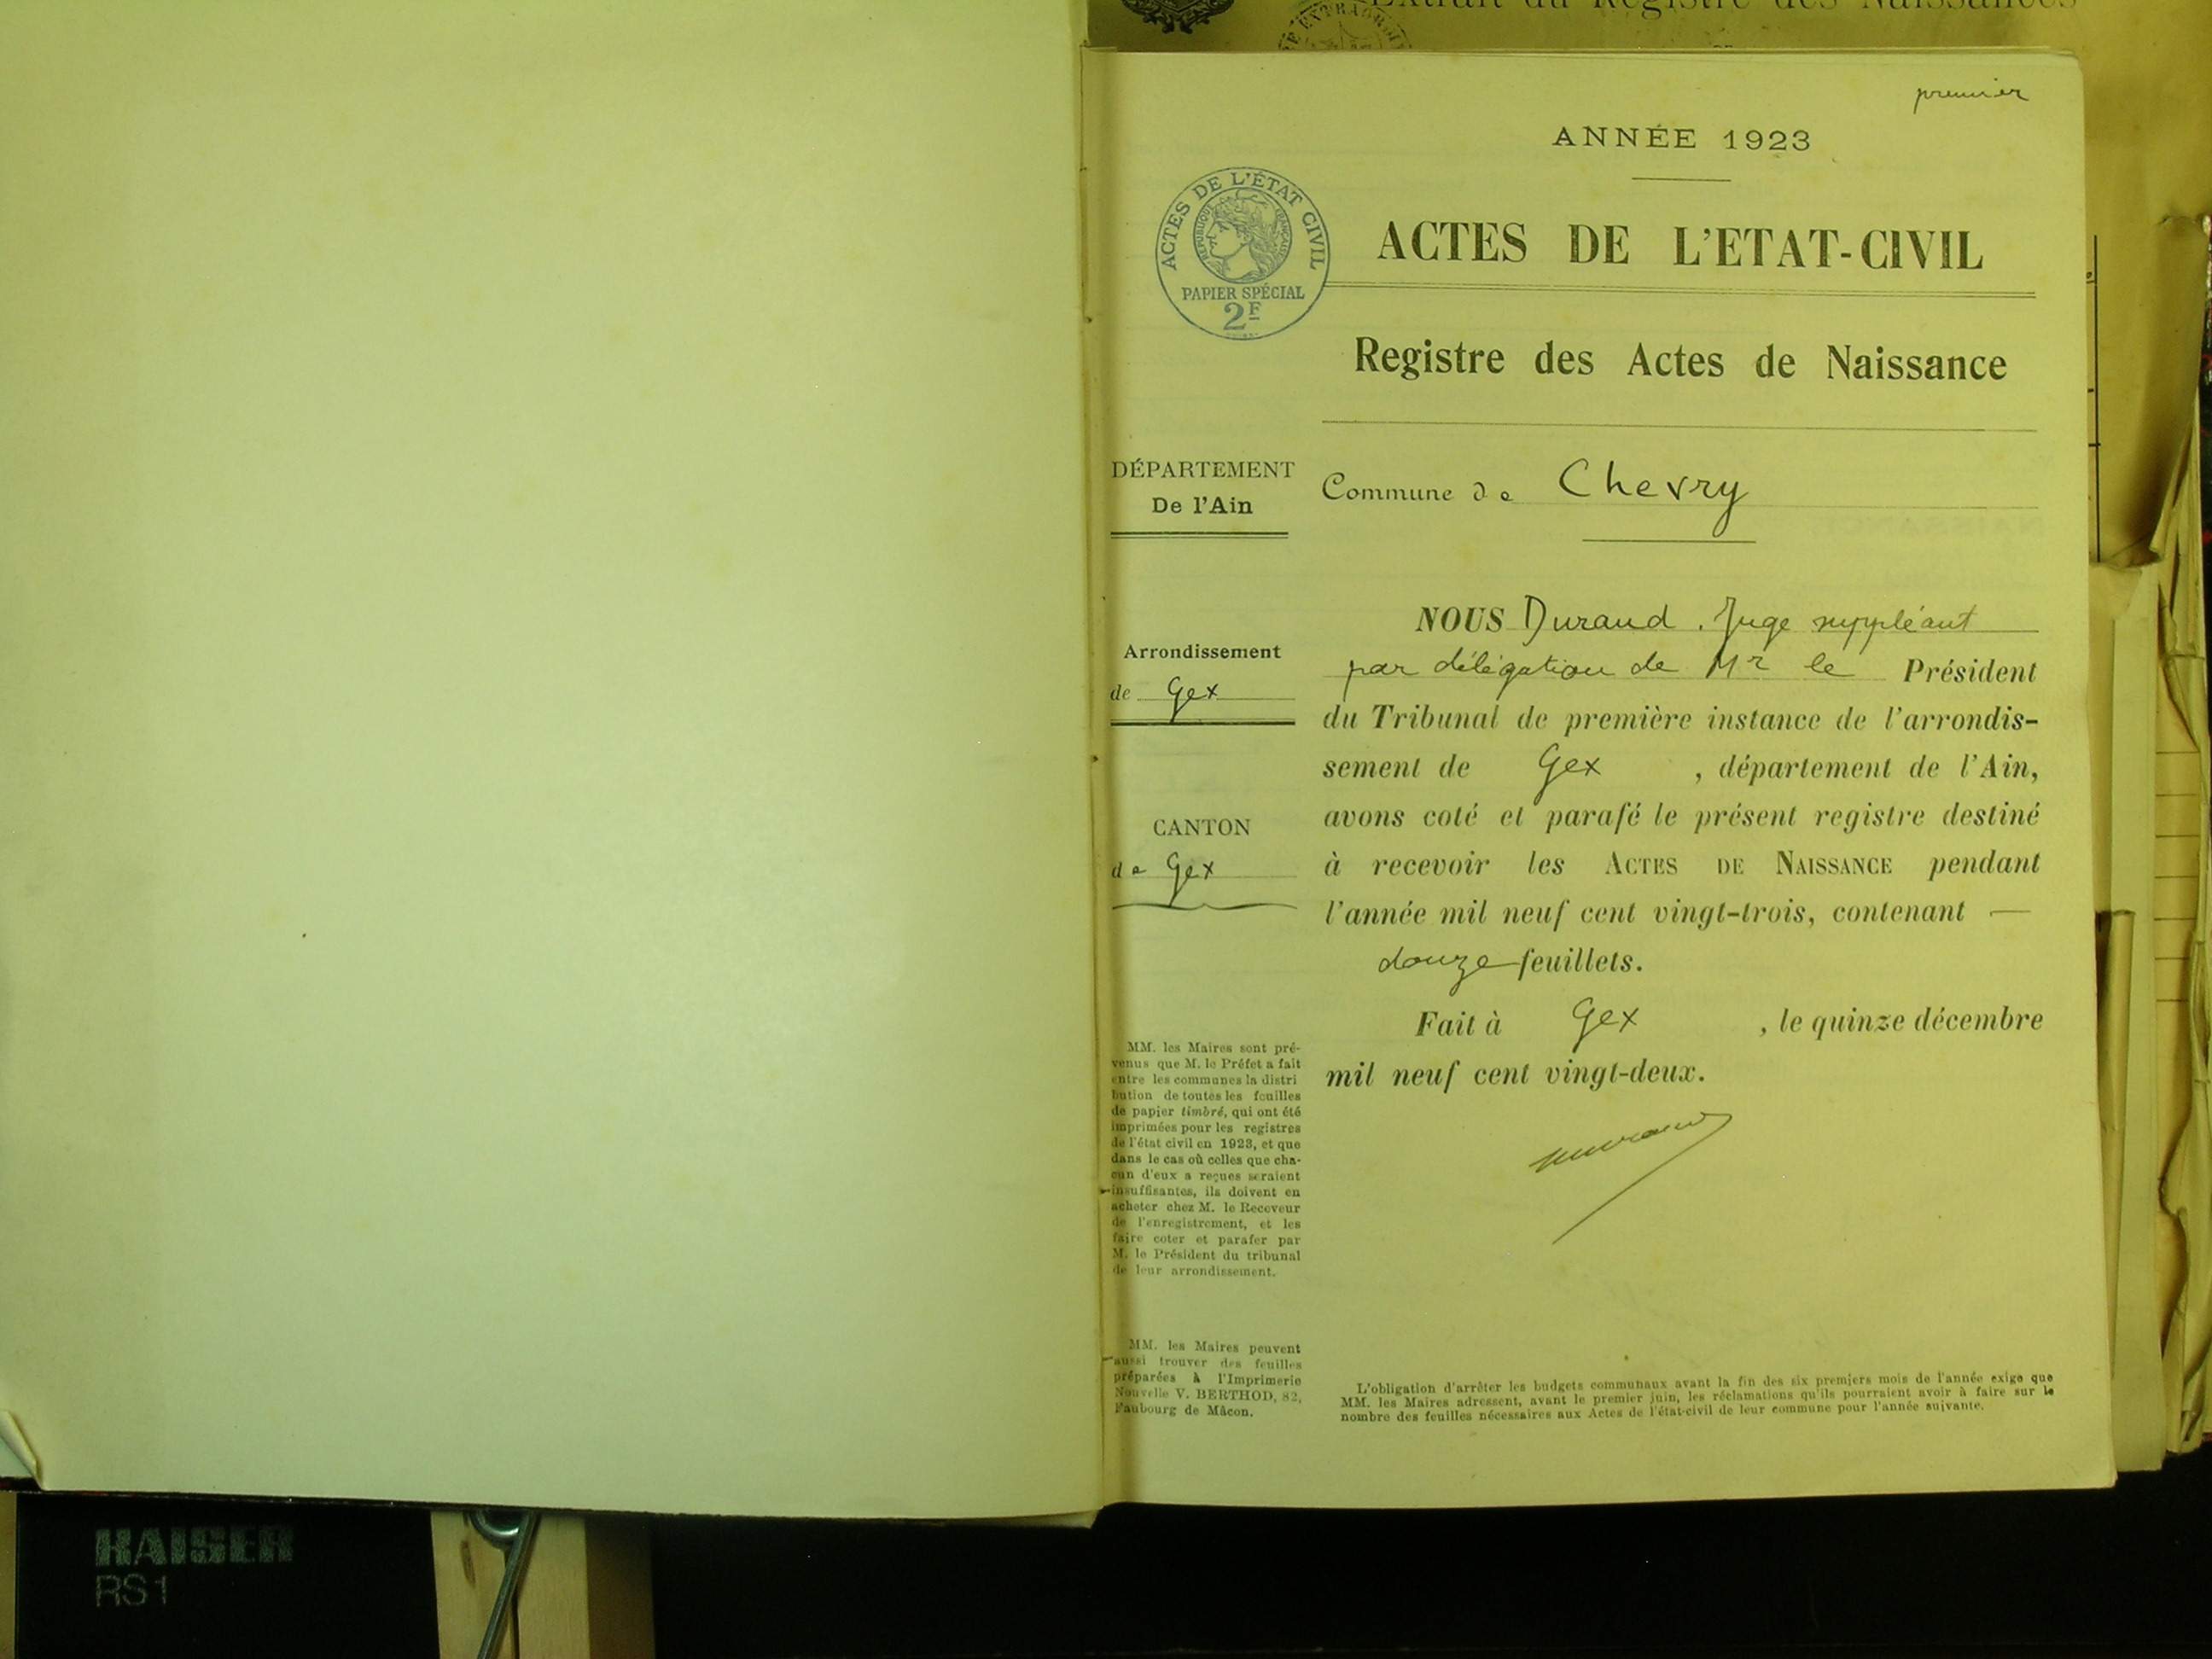 Extrait du Registre des Naissances
premier
ANNÉE 1923
ACTES DE L'ÉTAT CIVIL
RÉPUBLIQUE FRANÇAISE
PAPIER SPÉCIAL
2F
ACTES DE L'ETAT-CIVIL
Registre des Actes de Naissance
DÉPARTEMENT
De l'Ain
Commune de Chevry
Arrondissement
de Gex
CANTON
de Gex
NOUS Durand. Juge suppléant
par délégation de Mr le Président
du Tribunal de première instance de l'arrondis-
sement de Gex , département de l'Ain,
avons coté et parafé le présent registre destiné
à recevoir les ACTES DE NAISSANCE pendant
l'année mil neuf cent vingt-trois, contenant —
douze feuillets.
Fait à Gex , le quinze décembre
mil neuf cent vingt-deux.
MM. les Maires sont pré-
venus que M. le Préfet a fait
entre les communes la distri
bution de toutes les feuilles
de papier timbré, qui ont été
imprimées pour les registres
de l'état civil en 1923, et que
dans le cas où celles que cha-
cun d'eux a reçues seraient
insuffisantes, ils doivent en
acheter chez M. le Receveur
de l'enregistrement, et les
faire coter et parafer par
M. le Président du tribunal
de leur arrondissement.
MM. les Maires peuvent
aussi trouver des feuilles
préparées à l'Imprimerie
Nouvelle V. BERTHOD, 82,
Faubourg de Mâcon.
L'obligation d'arrêter les budgets communaux avant la fin des six premiers mois de l'année exige que
MM. les Maires adressent, avant le premier juin, les réclamations qu'ils pourraient avoir à faire sur le
nombre des feuilles nécessaires aux Actes de l'état-civil de leur commune pour l'année suivante.
KAISER
RS 1